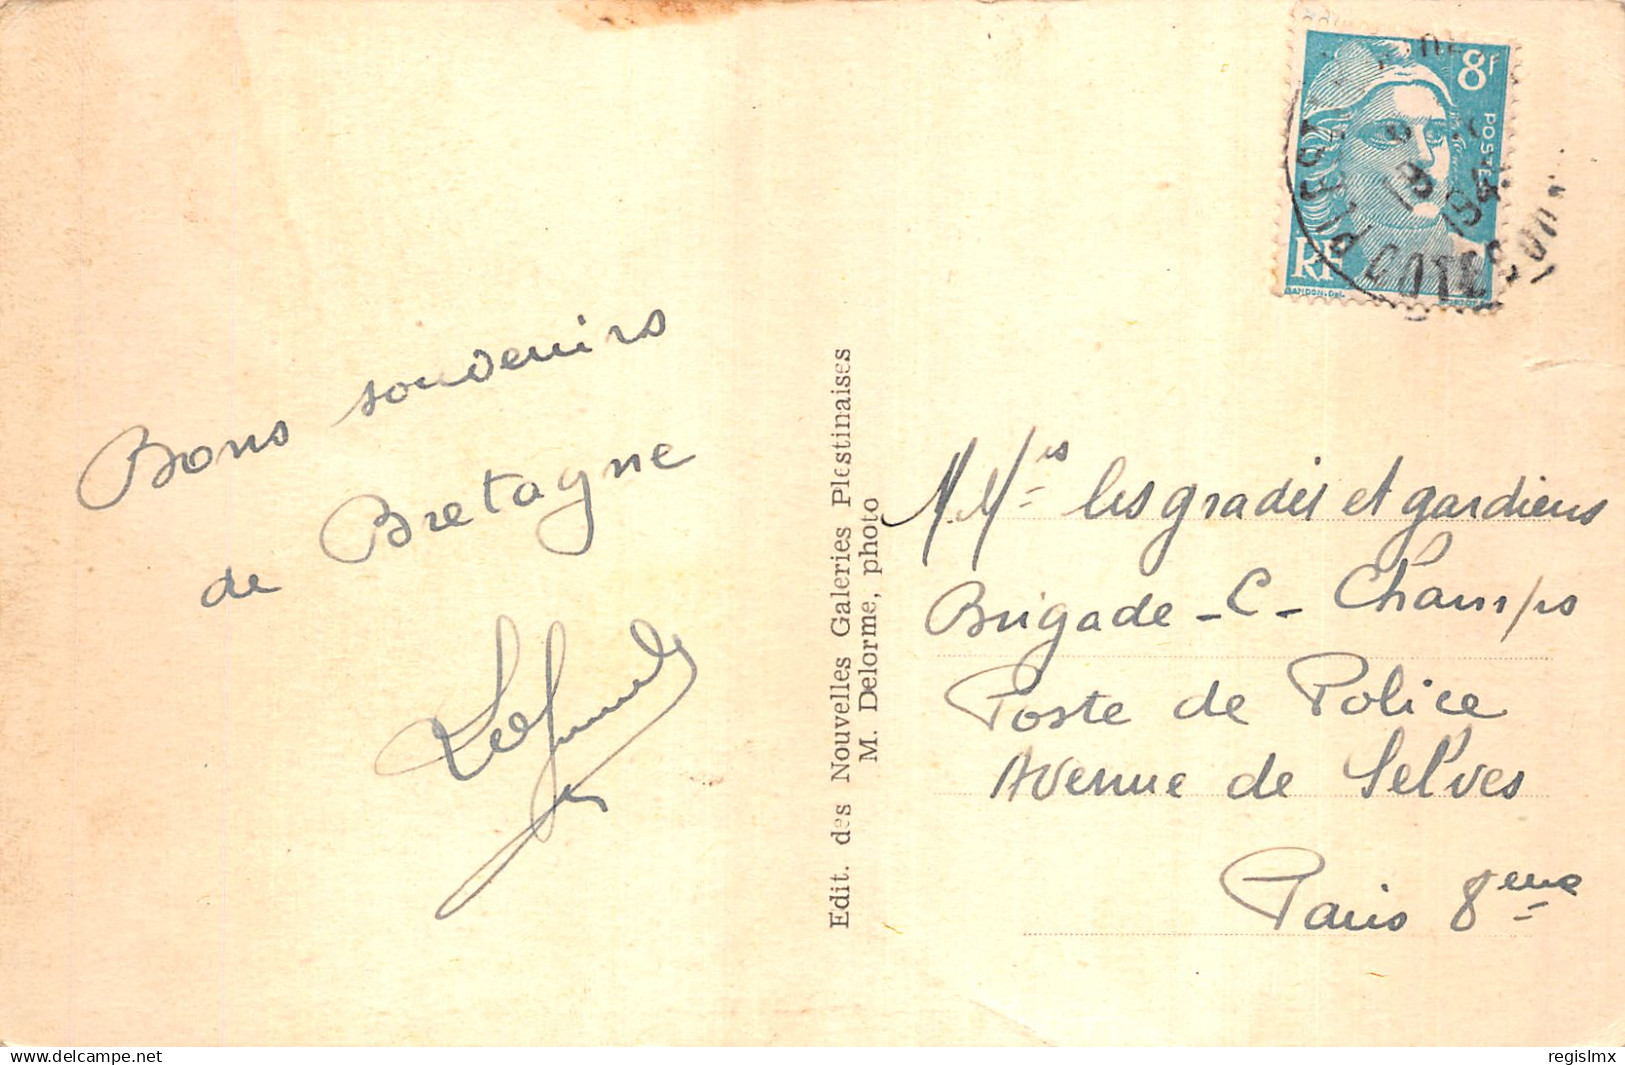 Bons souvenirs
de Bretagne
Edit. des Nouvelles Galeries Plestinaises
M. Delorme, photo
8f
POSTES
RF
GANDON.Del.
COTES DU
M.Mrs les gradés et gardiens
Brigade - C - Champs
Poste de Police
Avenue de Selves
Paris 8eme
www.delcampe.net
regislmx